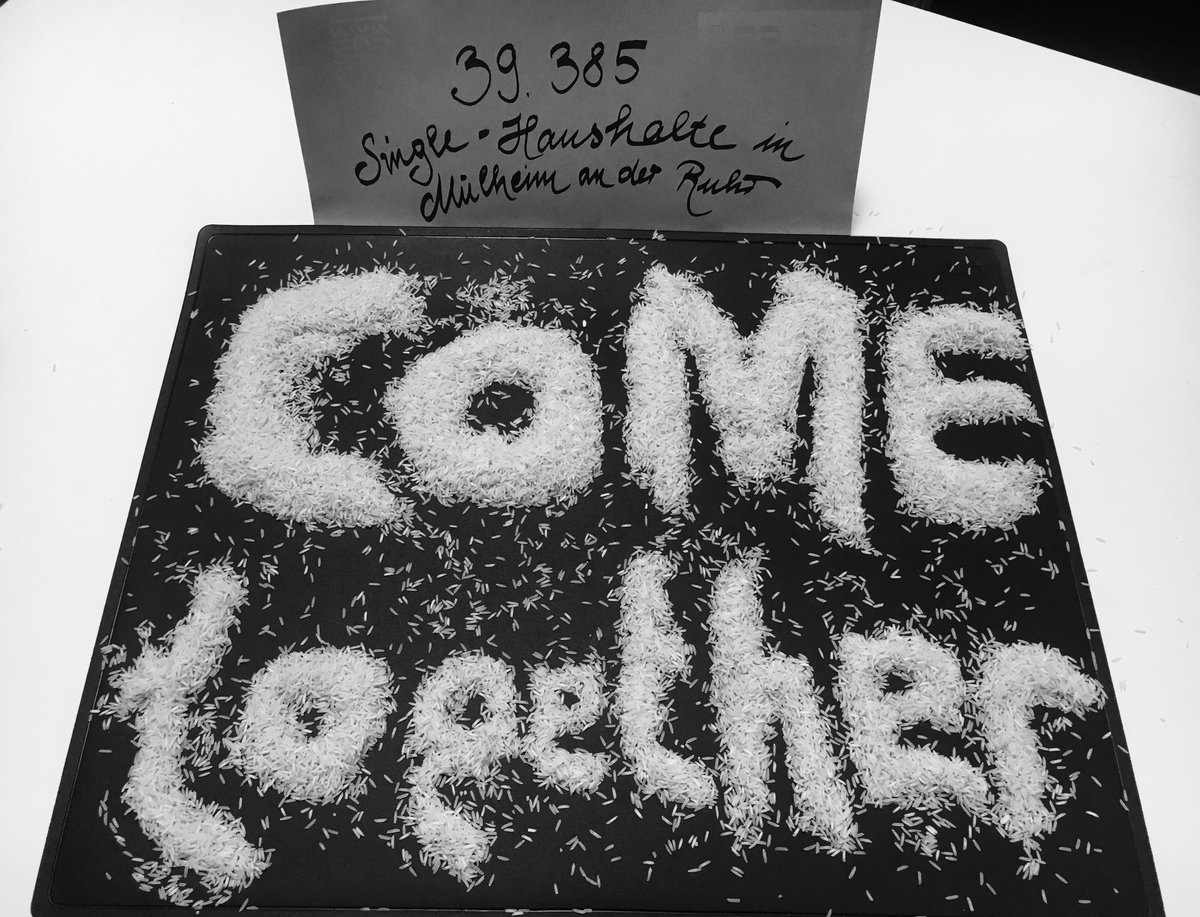 39.385
Single-Haushalte in
Mülheim an der Ruhr
COME
together